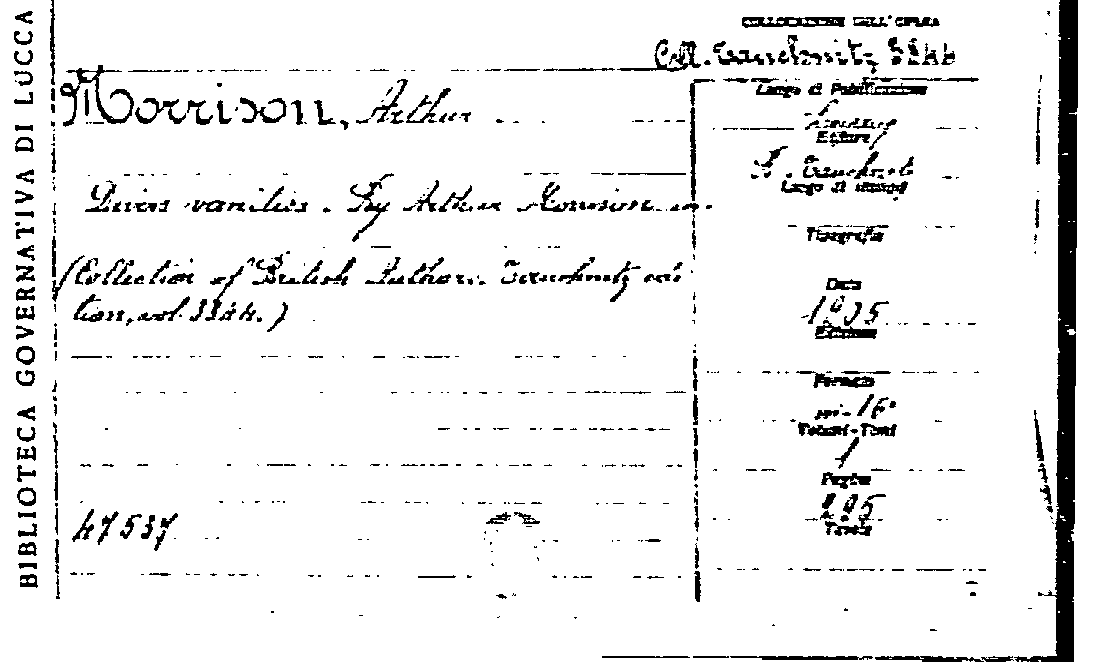 BIBLIOTECA GOVERNATIVA DI LUCCA
COLLOCAZIONE DELL'OPERA
Coll. Tauchnitz 3844
Morrison, Arthur
Divers vanities. By Arthur Morrison
(Collection of British Authors. Tauchnitz edi
tion, vol. 3844.)
47537
Luogo di Pubblicazione
Editore
B. Tauchnitz
Luogo di stampa
Tipografia
Data
1905
Edizione
Formato
in-16°
Volumi-Tomi
1
Pagine
295
Tavole